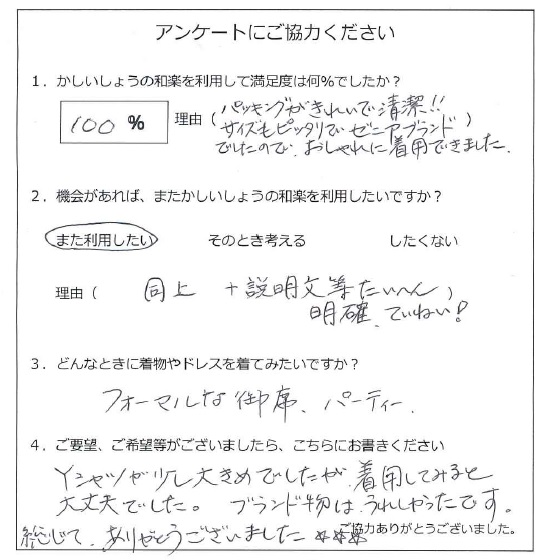 アンケートにご協力ください
1．かしいしょうの和楽を利用して満足度は何%でしたか？
100 %
理由（パッキングがきれいで清潔!!
サイズもピッタリで ゼニアブランド）
でしたので、おしゃれに着用できました。
2．機会があれば、またかしいしょうの和楽を利用したいですか？
また利用したい　そのとき考える　したくない
理由（　同上　+説明文等たいへん）
明確、ていねい!
3．どんなときに着物やドレスを着てみたいですか？
フォーマルな御席、パーティー．
4．ご要望、ご希望等がございましたら、こちらにお書きください
Yシャツが少し大きめでしたが、着用してみると
大丈夫でした。ブランド物は、うれしかったです。
総じて、ありがとうございました
ご協力ありがとうございました。